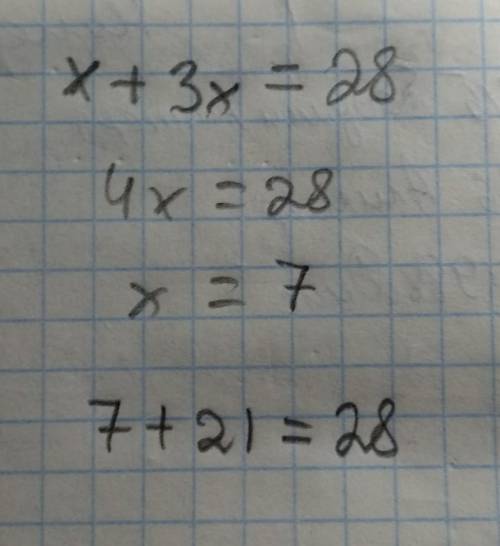 x + 3x = 28
4x = 28
x = 7
7 + 21 = 28